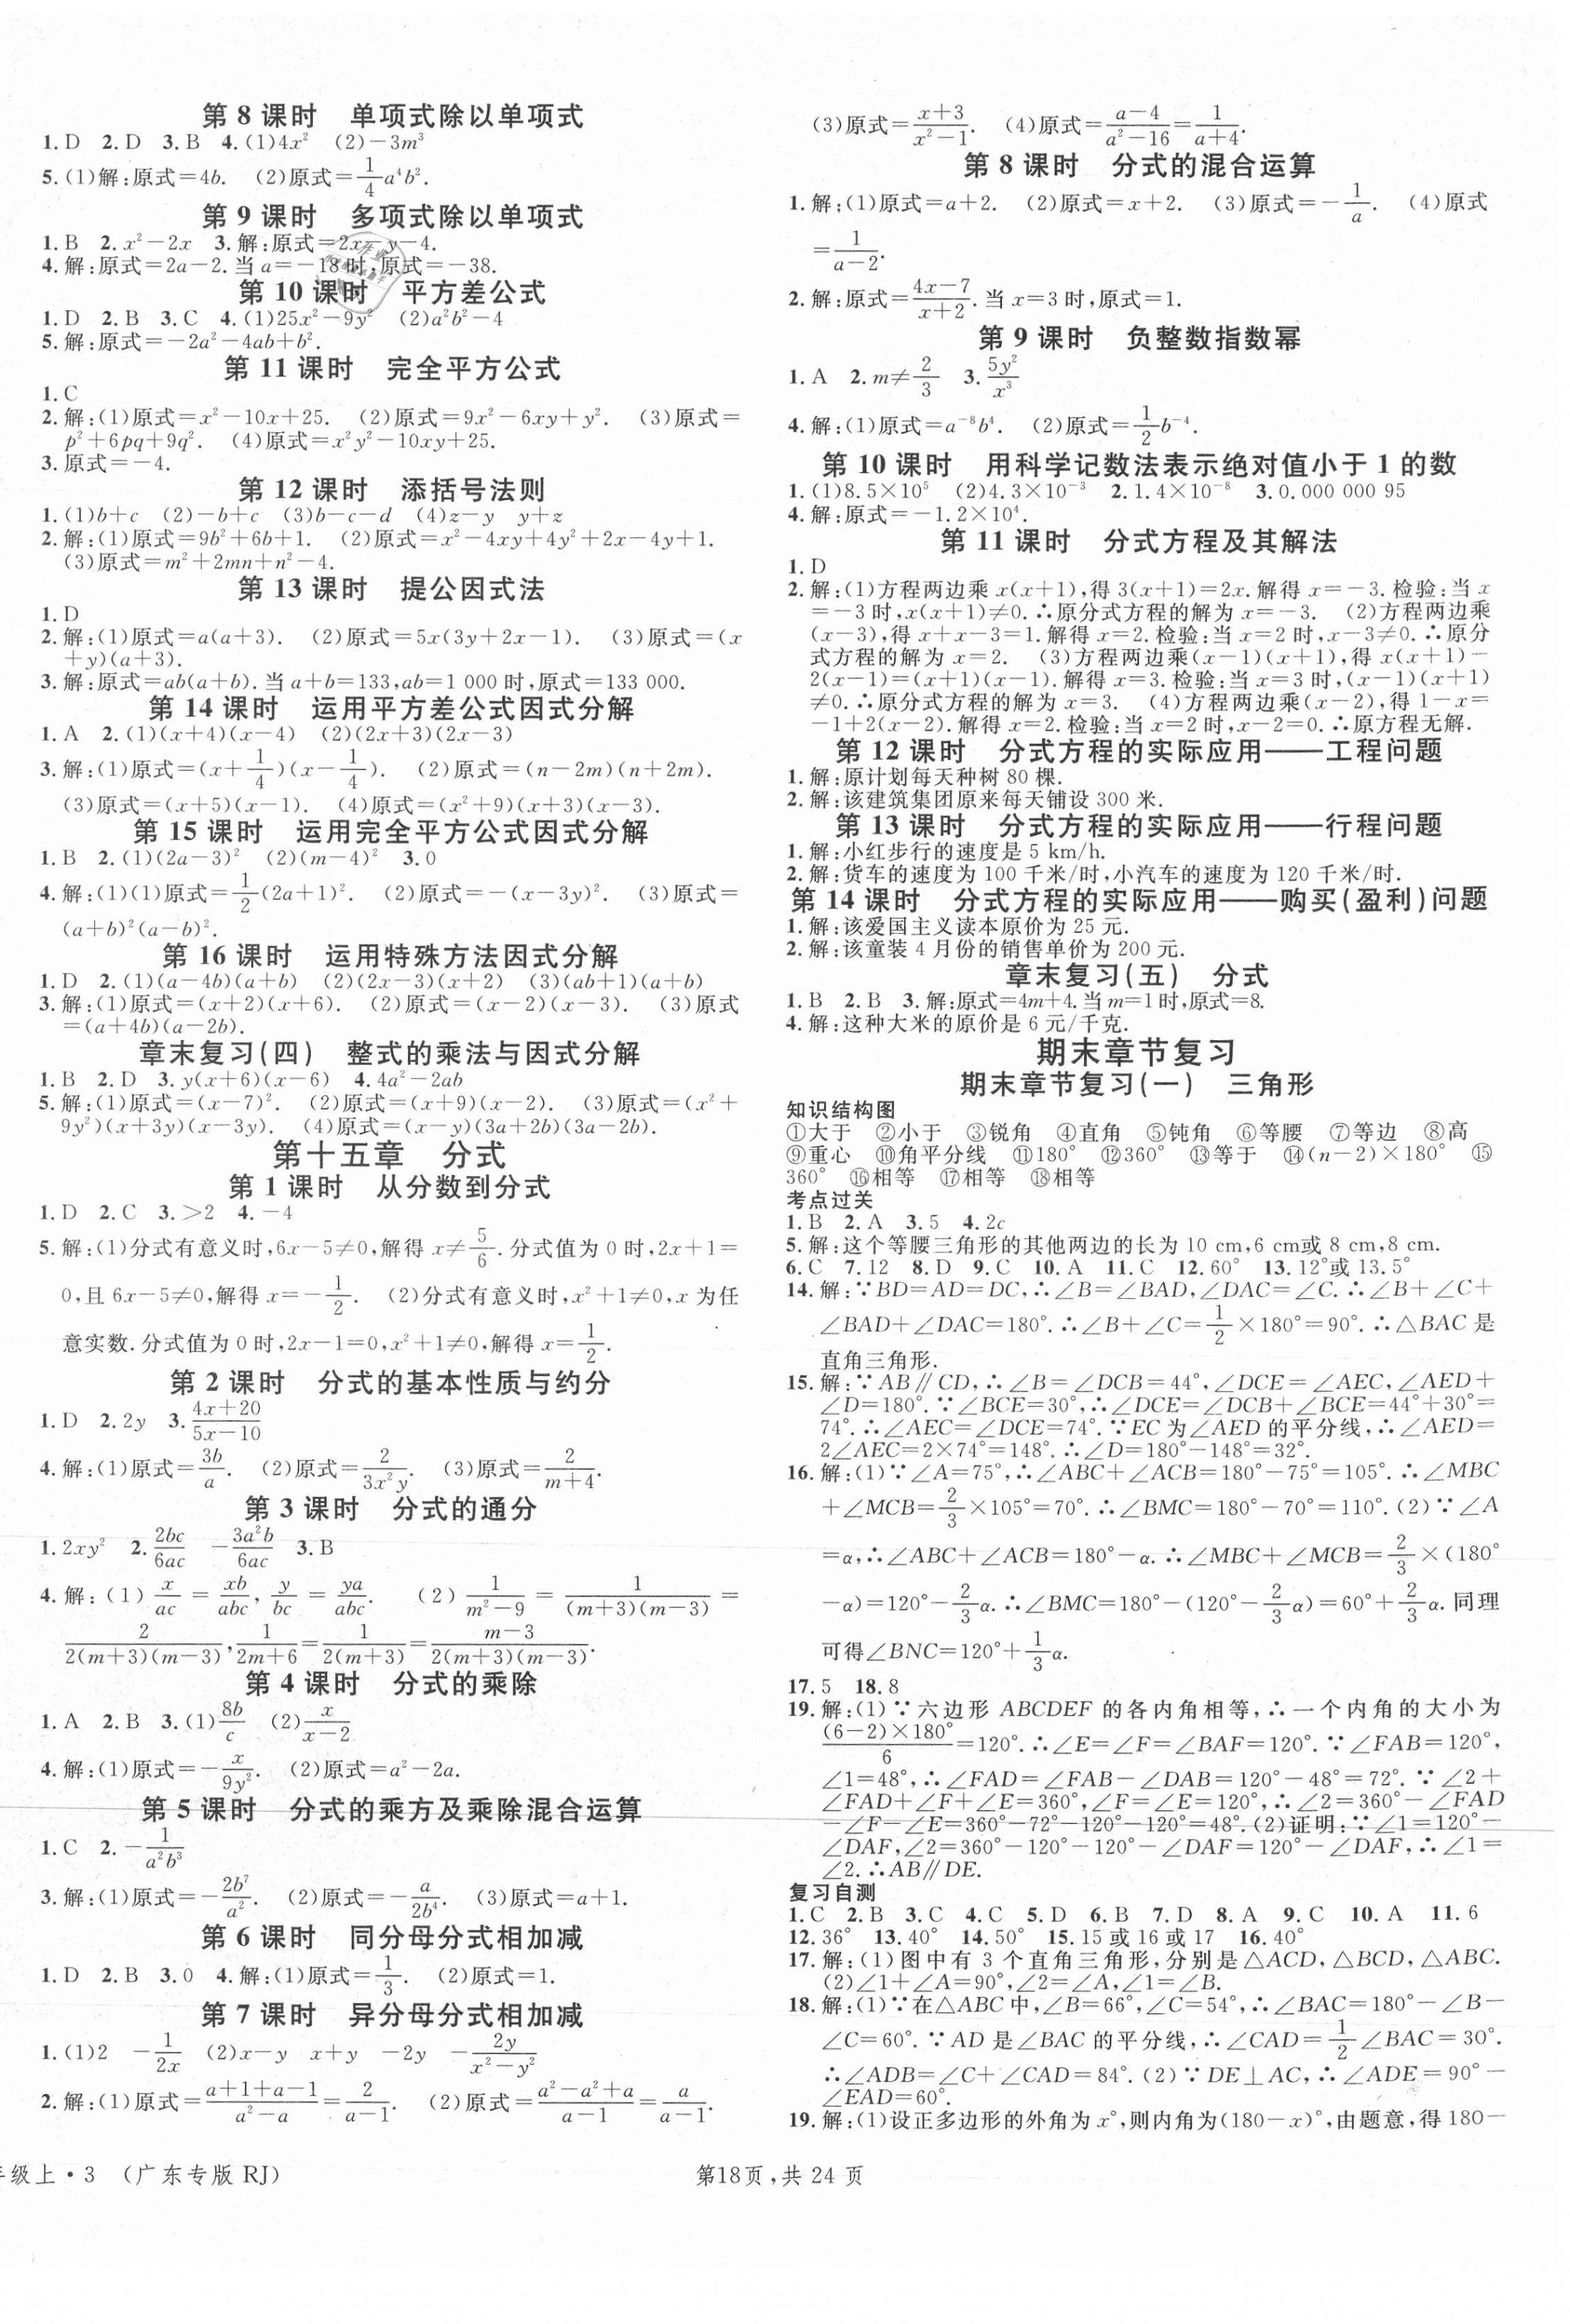 第 8 课时　单项式除以单项式
1. D　2. D　3. B　4. (1)4x²　(2)－3m³
5. (1)解:原式＝4b.　(2)原式＝1/4 a⁴b².
第 9 课时　多项式除以单项式
1. B　2. x²－2x　3. 解:原式＝2x－y－4.
4. 解:原式＝2a－2. 当 a＝－18时,原式＝－38.
第 10 课时　平方差公式
1. D　2. B　3. C　4. (1)25x²－9y²　(2)a²b²－4
5. 解:原式＝－2a²－4ab＋b².
第 11 课时　完全平方公式
1. C
2. 解:(1)原式＝x²－10x＋25.　(2)原式＝9x²－6xy＋y².　(3)原式＝
p²＋6pq＋9q².　(4)原式＝x²y²－10xy＋25.
3. 原式＝－4.
第 12 课时　添括号法则
1. (1)b＋c　(2)－b＋c　(3)b－c－d　(4)z－y　y＋z
2. 解:(1)原式＝9b²＋6b＋1.　(2)原式＝x²－4xy＋4y²＋2x－4y＋1.
(3)原式＝m²＋2mn＋n²－4.
第 13 课时　提公因式法
1. D
2. 解:(1)原式＝a(a＋3).　(2)原式＝5x(3y＋2x－1).　(3)原式＝(x
＋y)(a＋3).
3. 解:原式＝ab(a＋b). 当 a＋b＝133,ab＝1 000 时,原式＝133 000.
第 14 课时　运用平方差公式因式分解
1. A　2. (1)(x＋4)(x－4)　(2)(2x＋3)(2x－3)
3. 解:(1)原式＝(x＋1/4)(x－1/4).　(2)原式＝(n－2m)(n＋2m).
(3)原式＝(x＋5)(x－1).　(4)原式＝(x²＋9)(x＋3)(x－3).
第 15 课时　运用完全平方公式因式分解
1. B　2. (1)(2a－3)²　(2)(m－4)²　3. 0
4. 解:(1)(1)原式＝1/2(2a＋1)².　(2)原式＝－(x－3y)².　(3)原式＝
(a＋b)²(a－b)².
第 16 课时　运用特殊方法因式分解
1. D　2. (1)(a－4b)(a＋b)　(2)(2x－3)(x＋2)　(3)(ab＋1)(a＋b)
3. 解:(1)原式＝(x＋2)(x＋6).　(2)原式＝(x－2)(x－3).　(3)原式
＝(a＋4b)(a－2b).
章末复习(四)　整式的乘法与因式分解
1. B　2. D　3. y(x＋6)(x－6)　4. 4a²－2ab
5. 解:(1)原式＝(x－7)².　(2)原式＝(x＋9)(x－2).　(3)原式＝(x²＋
9y²)(x＋3y)(x－3y).　(4)原式＝(x－y)(3a＋2b)(3a－2b).
第十五章　分式
第 1 课时　从分数到分式
1. D　2. C　3. ＞2　4. －4
5. 解:(1)分式有意义时,6x－5≠0,解得 x≠5/6. 分式值为 0 时,2x＋1＝
0,且 6x－5≠0,解得 x＝－1/2.　(2)分式有意义时,x²＋1≠0,x 为任
意实数. 分式值为 0 时,2x－1＝0,x²＋1≠0,解得 x＝1/2.
第 2 课时　分式的基本性质与约分
1. D　2. 2y　3. (4x＋20)/(5x－10)
4. 解:(1)原式＝3b/a.　(2)原式＝2/(3x²y).　(3)原式＝2/(m＋4).
第 3 课时　分式的通分
1. 2xy²　2. 2bc/6ac　－3a²b/6ac　3. B
4. 解:(1) x/ac＝xb/abc, y/bc＝ya/abc.　(2) 1/(m²－9)＝1/((m＋3)(m－3))＝
2/(2(m＋3)(m－3)), 1/(2m＋6)＝1/(2(m＋3))＝(m－3)/(2(m＋3)(m－3)).
第 4 课时　分式的乘除
1. A　2. B　3. (1)8b/c　(2)x/(x－2)
4. 解:(1)原式＝－x/(9y²).　(2)原式＝a²－2a.
第 5 课时　分式的乘方及乘除混合运算
1. C　2. －1/(a²b³)
3. 解:(1)原式＝－2b⁷/a².　(2)原式＝－a/(2b⁴).　(3)原式＝a＋1.
第 6 课时　同分母分式相加减
1. D　2. B　3. 0　4. 解:(1)原式＝1/3.　(2)原式＝1.
第 7 课时　异分母分式相加减
1. (1)2　－1/2x　(2)x－y　x＋y　－2y　－2y/(x²－y²)
2. 解:(1)原式＝(a＋1＋a－1)/(a²－a)＝2/(a－1).　(2)原式＝(a²－a²＋a)/(a－1)＝a/(a－1).
(3)原式＝(x＋3)/(x²－1).　(4)原式＝(a－4)/(a²－16)＝1/(a＋4).
第 8 课时　分式的混合运算
1. 解:(1)原式＝a＋2.　(2)原式＝x＋2.　(3)原式＝－1/a.　(4)原式
＝1/(a－2).
2. 解:原式＝(4x－7)/(x＋2). 当 x＝3 时,原式＝1.
第 9 课时　负整数指数幂
1. A　2. m≠2/3　3. 5y²/x³
4. 解:(1)原式＝a⁻⁸b⁴.　(2)原式＝1/2 b⁻⁴.
第 10 课时　用科学记数法表示绝对值小于 1 的数
1. (1)8.5×10⁵　(2)4.3×10⁻³　2. 1.4×10⁻⁸　3. 0.000 000 95
4. 解:原式＝－1.2×10⁴.
第 11 课时　分式方程及其解法
1. D
2. 解:(1)方程两边乘 x(x＋1),得 3(x＋1)＝2x. 解得 x＝－3. 检验:当 x
＝－3 时,x(x＋1)≠0. ∴原分式方程的解为 x＝－3.　(2)方程两边乘
(x－3),得 x＋x－3＝1. 解得 x＝2. 检验:当 x＝2 时,x－3≠0. ∴原分
式方程的解为 x＝2.　(3)方程两边乘(x－1)(x＋1),得 x(x＋1)－
2(x－1)＝(x＋1)(x－1). 解得 x＝3. 检验:当 x＝3 时,(x－1)(x＋1)
≠0. ∴原分式方程的解为 x＝3.　(4)方程两边乘(x－2),得 1－x＝
－1＋2(x－2). 解得 x＝2. 检验:当 x＝2 时,x－2＝0. ∴原方程无解.
第 12 课时　分式方程的实际应用——工程问题
1. 解:原计划每天种树 80 棵.
2. 解:该建筑集团原来每天铺设 300 米.
第 13 课时　分式方程的实际应用——行程问题
1. 解:小红步行的速度是 5 km/h.
2. 解:货车的速度为 100 千米/时,小汽车的速度为 120 千米/时.
第 14 课时　分式方程的实际应用——购买(盈利)问题
1. 解:该爱国主义读本原价为 25 元.
2. 解:该童装 4 月份的销售单价为 200 元.
章末复习(五)　分式
1. B　2. B　3. 解:原式＝4m＋4. 当 m＝1 时,原式＝8.
4. 解:这种大米的原价是 6 元/千克.
期末章节复习
期末章节复习(一)　三角形
知识结构图
①大于　②小于　③锐角　④直角　⑤钝角　⑥等腰　⑦等边　⑧高
⑨重心　⑩角平分线　⑪180°　⑫360°　⑬等于　⑭(n－2)×180°　⑮
360°　⑯相等　⑰相等　⑱相等
考点过关
1. B　2. A　3. 5　4. 2c
5. 解:这个等腰三角形的其他两边的长为 10 cm,6 cm或 8 cm,8 cm.
6. C　7. 12　8. D　9. C　10. A　11. C　12. 60°　13. 12°或 13.5°
14. 解:∵BD＝AD＝DC,∴∠B＝∠BAD,∠DAC＝∠C. ∴∠B＋∠C＋
∠BAD＋∠DAC＝180°. ∴∠B＋∠C＝1/2×180°＝90°. ∴△BAC 是
直角三角形.
15. 解:∵AB∥CD,∴∠B＝∠DCB＝44°,∠DCE＝∠AEC,∠AED＋
∠D＝180°. ∵∠BCE＝30°,∴∠DCE＝∠DCB＋∠BCE＝44°＋30°＝
74°. ∴∠AEC＝∠DCE＝74°. ∵EC 为∠AED 的平分线,∴∠AED＝
2∠AEC＝2×74°＝148°. ∴∠D＝180°－148°＝32°.
16. 解:(1)∵∠A＝75°,∴∠ABC＋∠ACB＝180°－75°＝105°. ∴∠MBC
＋∠MCB＝2/3×105°＝70°. ∴∠BMC＝180°－70°＝110°. (2)∵∠A
＝α,∴∠ABC＋∠ACB＝180°－α. ∴∠MBC＋∠MCB＝2/3×(180°
－α)＝120°－2/3α. ∴∠BMC＝180°－(120°－2/3α)＝60°＋2/3α. 同理
可得∠BNC＝120°＋1/3α.
17. 5　18. 8
19. 解:(1)∵六边形 ABCDEF 的各内角相等,∴一个内角的大小为
(6－2)×180°/6＝120°. ∴∠E＝∠F＝∠BAF＝120°. ∵∠FAB＝120°,
∠1＝48°,∴∠FAD＝∠FAB－∠DAB＝120°－48°＝72°. ∵∠2＋
∠FAD＋∠F＋∠E＝360°,∠F＝∠E＝120°,∴∠2＝360°－∠FAD
－∠F－∠E＝360°－72°－120°－120°＝48°. (2)证明:∵∠1＝120°－
∠DAF,∠2＝360°－120°－120°－∠DAF＝120°－∠DAF,∴∠1＝
∠2. ∴AB∥DE.
复习自测
1. C　2. B　3. C　4. C　5. D　6. B　7. D　8. A　9. C　10. A　11. 6
12. 36°　13. 40°　14. 50°　15. 15 或 16 或 17　16. 40°
17. 解:(1)图中有 3 个直角三角形,分别是△ACD,△BCD,△ABC.
(2)∠1＋∠A＝90°,∠2＝∠A,∠1＝∠B.
18. 解:(1)∵在△ABC 中,∠B＝66°,∠C＝54°,∴∠BAC＝180°－∠B－
∠C＝60°. ∵AD 是∠BAC 的平分线,∴∠CAD＝1/2∠BAC＝30°.
∴∠ADB＝∠C＋∠CAD＝84°. (2)∵DE⊥AC,∴∠ADE＝90°－
∠EAD＝60°.
19. 解:(1)设正多边形的外角为 x°,则内角为(180－x)°,由题意,得 180－
年级上·3　(广东专版 RJ)
第18页,共 24 页